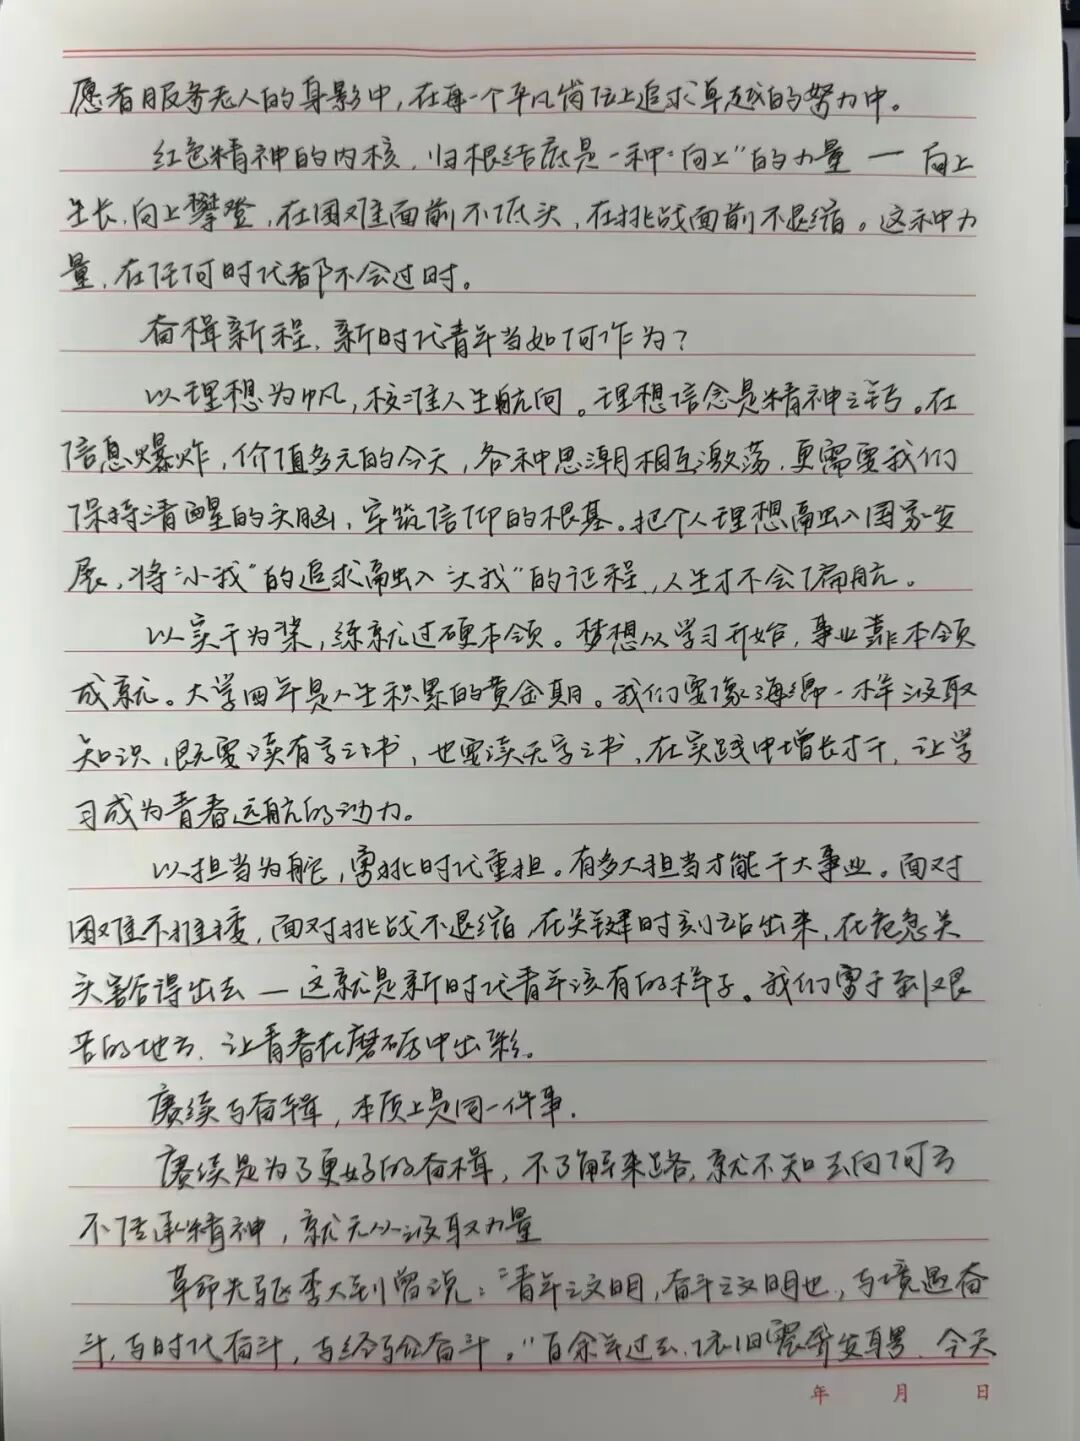 愿者服务老人的身影中，在每一个平凡岗位上追求卓越的努力中。
红色精神的内核，归根结底是一种“向上”的力量 — 向上
生长，向上攀登，在困难面前不低头，在挑战面前不退缩。这种力
量，在任何时代都不会过时。
奋楫新程，新时代青年当如何作为？
以理想为帆，校准人生航向。理想信念是精神之钙。在
信息爆炸，价值多元的今天，各种思潮相互激荡，更需要我们
保持清醒的头脑，牢筑信仰的根基。把个人理想融入国家发
展，将“小我”的追求融入“大我”的征程，人生才不会偏航。
以实干为桨，练就过硬本领。梦想从学习开始，事业靠本领
成就。大学四年是人生积累的黄金期。我们要像海绵一样汲取
知识，既要读有字之书，也要读无字之书，在实践中增长才干，让学
习成为青春远航的动力。
以担当为舵，勇挑时代重担。有多大担当才能干大事业。面对
困难不推诿，面对挑战不退缩，在关键时刻站出来，在危急关
头豁得出去 — 这就是新时代青年该有的样子。我们要勇于到艰
苦的地方，让青春在磨砺中出彩。
赓续与奋楫，本质上是同一件事．
赓续是为了更好的奋楫，不了解来路，就不知去向何方
不传承精神，就无从汲取力量
革命先驱李大钊曾说：“青年之文明，奋斗之文明也，与境遇奋
斗，与时代奋斗，与经验奋斗。”百余年过去，依旧震耳发聩．今天
年 月 日